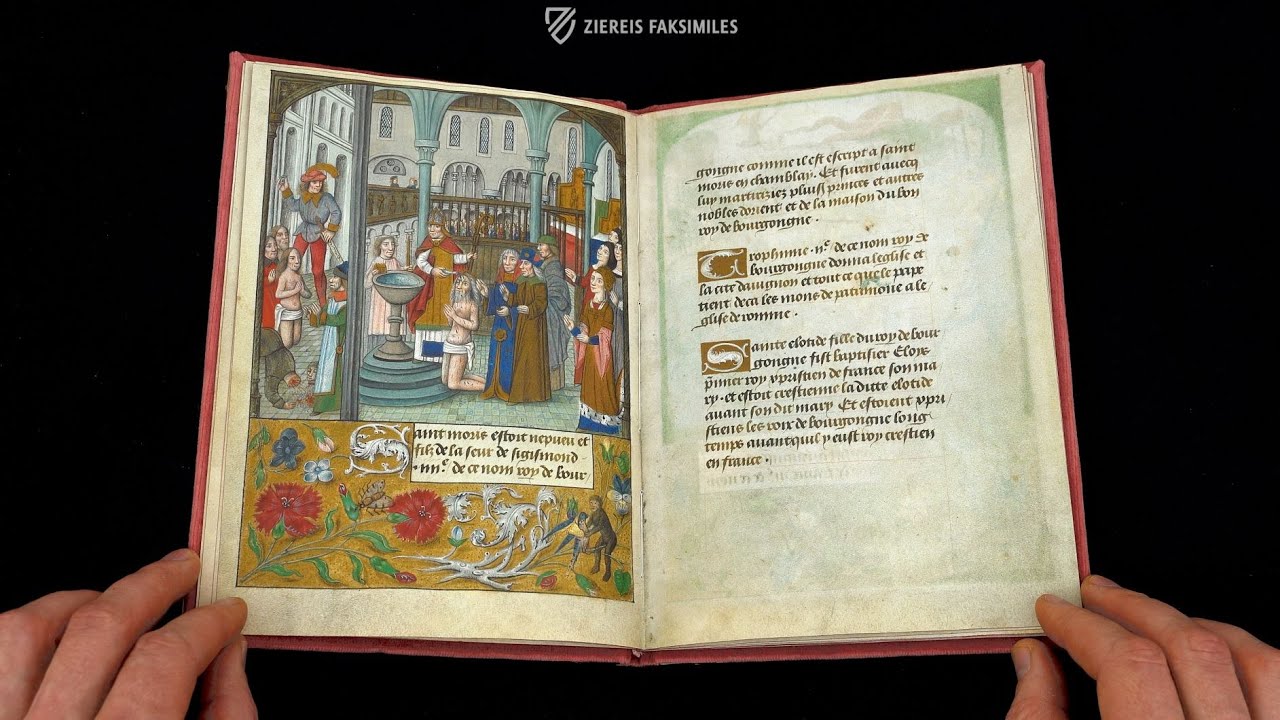 ZIEREIS FAKSIMILES
Saint moris estoit nepueu et
filz de la seur de sigismond
.iiii.e de ce nom roy de bour
gongne comme il est escript a saint
moris en chamblay. Et furent auecq
luy martiriziez pluiss princes et autres
nobles dorient et de la maison du bon
roy de bourgongne.
Trophime .ii.e de ce nom roy de
bourgongne donna leglise et
la cite dauignon et tout ce que le pape
tient deca les mons de patrimoine a le
glise de romme.
Sainte clotide fille du roy de bour
gongne fist baptisier Cloys
p̄mier roy xpristien de france son ma
ry. et estoit crestienne la ditte clotide
auant son dit mary Et estoient xpri
stiens les roix de bourgongne long
temps auant quil y eust roy crestien
en france.